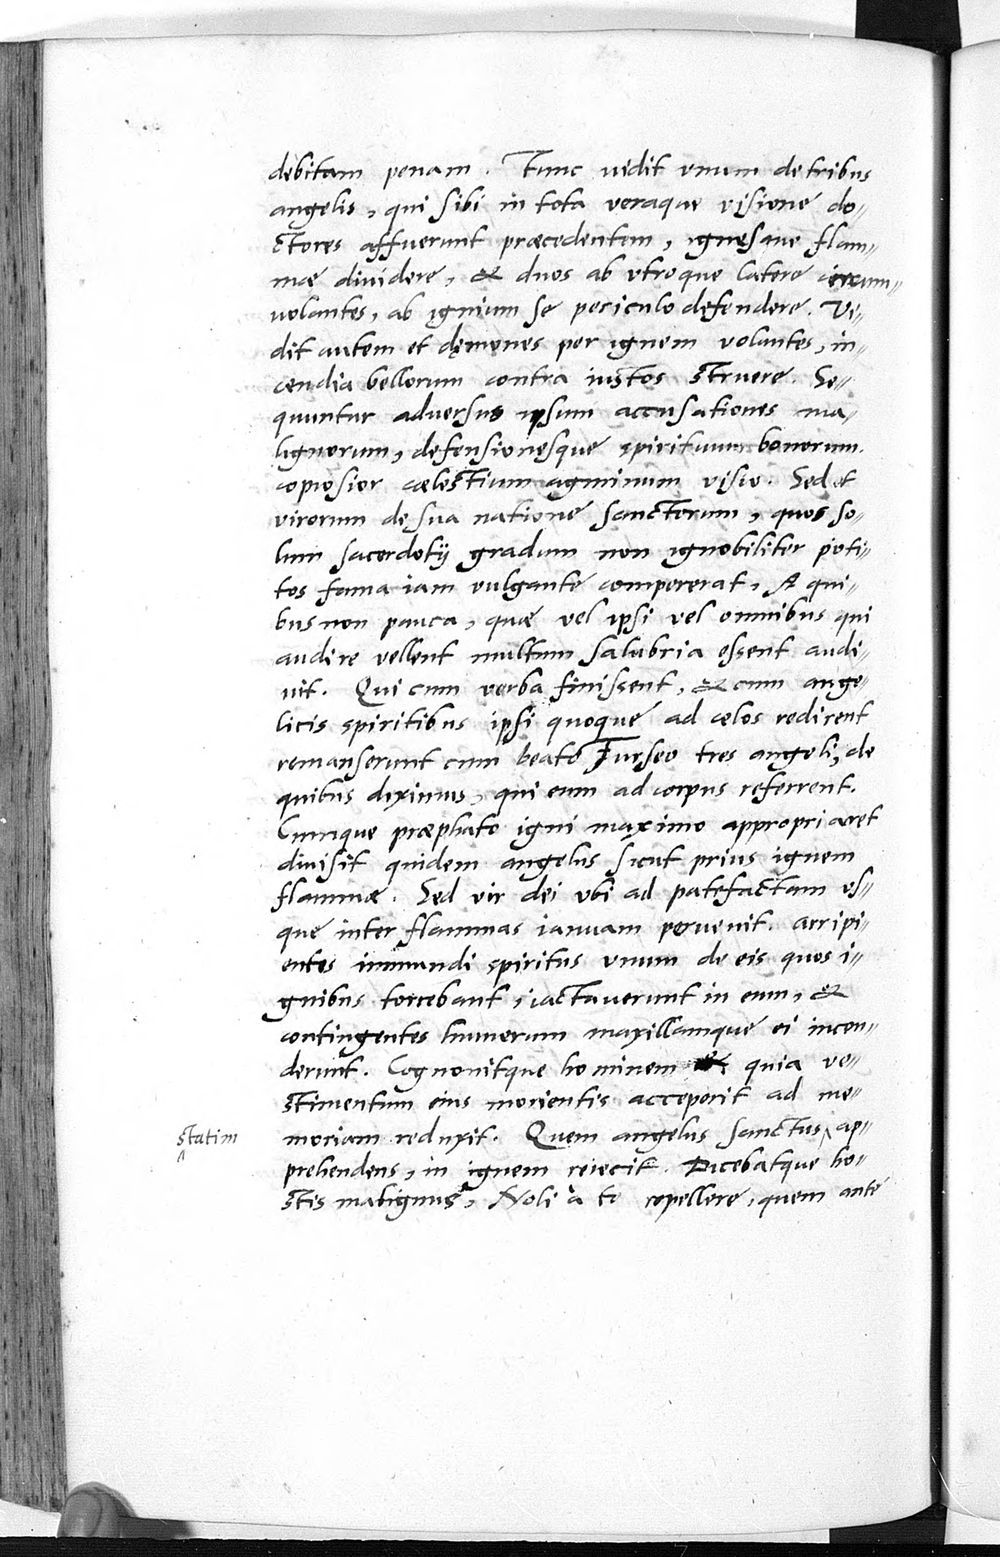 debitam penam. Tunc uidit vnum de tribus
angelis, qui sibi in tota veraque visione do=
ctores affuerunt præcedentem, ignesque flam=
mæ diuidere, & duos ab vtroque latere circum=
uolantes, ab ignium se periculo defendere. Vi=
dit autem et dęmones per ignem volantes, in=
cendia bellorum contra iustos struere. Se=
quuntur aduersus ipsum accusationes ma=
lignorum, defensionesque spirituum bonorum.
copiosior cælestium agminum visio. Sed et
virorum de sua natione sanctorum, quos so=
lum sacerdotij gradum non ignobiliter poti=
tos fama iam vulgante compererat, A qui=
bus non pauca, quæ vel ipsi vel omnibus qui
audire vellent multum salubria essent audi=
uit. Qui cum verba finissent, & cum ange=
licis spiritibus ipsi quoque ad cælos redirent
remanserunt cum beato Furseo tres angeli, de
quibus diximus, qui eum ad corpus referrent.
Cumque præphato igni maximo appropriaret
diuisit quidem angelus sicut prius ignem
flammæ. Sed vir dei vbi ad patefactam vs=
que inter flammas ianuam peruenit. arripi=
entes immundi spiritus vnum de eis quos i=
gnibus torrebant, iactauerunt in eum, &
contingentes humerum maxillamque ei incen=
derunt. Cognouitque hominem quia ve=
stimentum eius morientis acceperit ad me=
moriam reduxit. Quem angelus sanctus ‸ ap=
statim
prehendens, in ignem reiecit. Dicebatque ho=
stis malignus, Noli à te repellere, quem ante